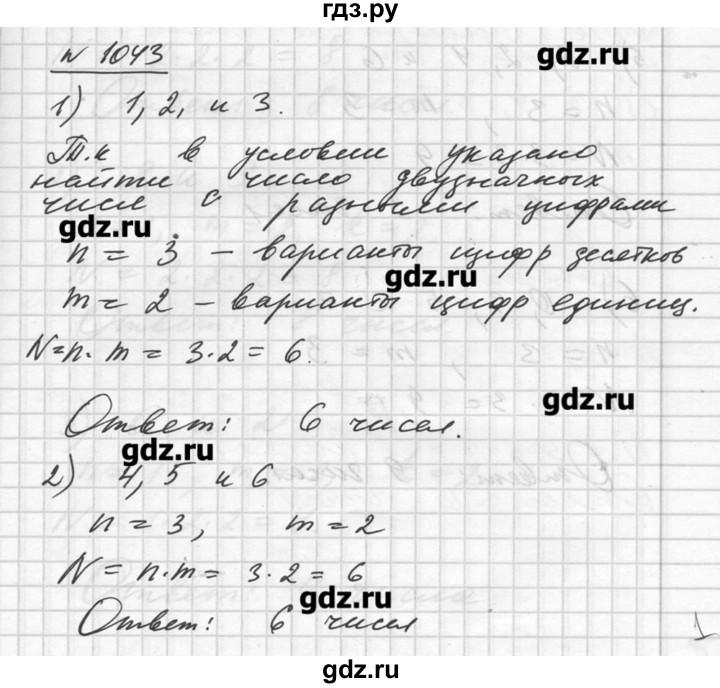 гдз.ру
gdz.ru
n 1043
1) 1, 2, и 3.
Т.к в условии указано
найти число двузначных
чисел с разными цифрами
gdz.ru
n = 3 - варианты цифр десятков
gdz.ru
m = 2 - варианты цифр единиц.
N = n · m = 3 · 2 = 6.
gdz.ru
Ответ: 6 чисел.
gdz.ru
2) 4, 5 и 6
n = 3, m = 2
N = n · m = 3 · 2 = 6
gdz.ru
Ответ: 6 чисел
1
gdz.ru